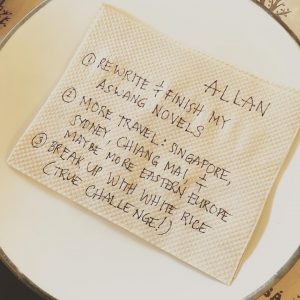 ALLAN
① REWRITE & FINISH MY
ASWANG NOVELS
② MORE TRAVEL: SINGAPORE,
SYDNEY, CHIANG MAI,
MAYBE MORE EASTERN EUROPE
③ BREAK UP WITH WHITE RICE
(TRUE CHALLENGE!)